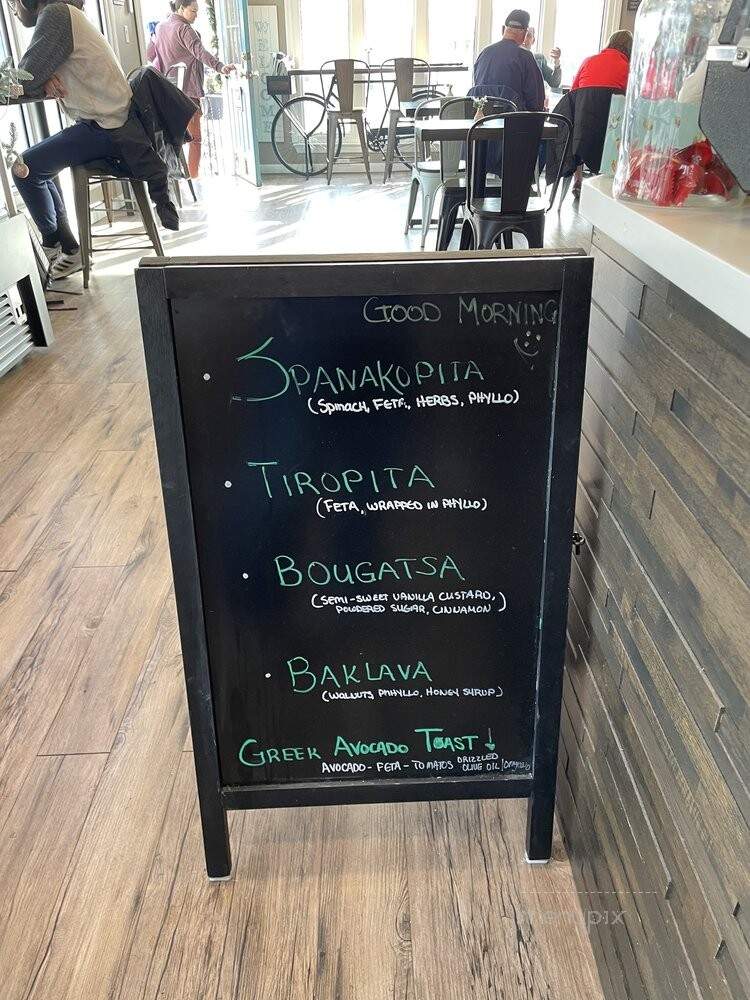 GOOD MORNING
SPANAKOPITA
(SPINACH, FETA, HERBS, PHYLLO)
TIROPITA
(FETA, WRAPPED IN PHYLLO)
BOUGATSA
(SEMI-SWEET VANILLA CUSTARD,
POWDERED SUGAR, CINNAMON)
BAKLAVA
(WALNUTS, PHHYLLO, HONEY SYRUP)
GREEK AVOCADO TOAST
AVOCADO - FETA - TOMATOS DRIZZLED
OLIVE OIL
menupix